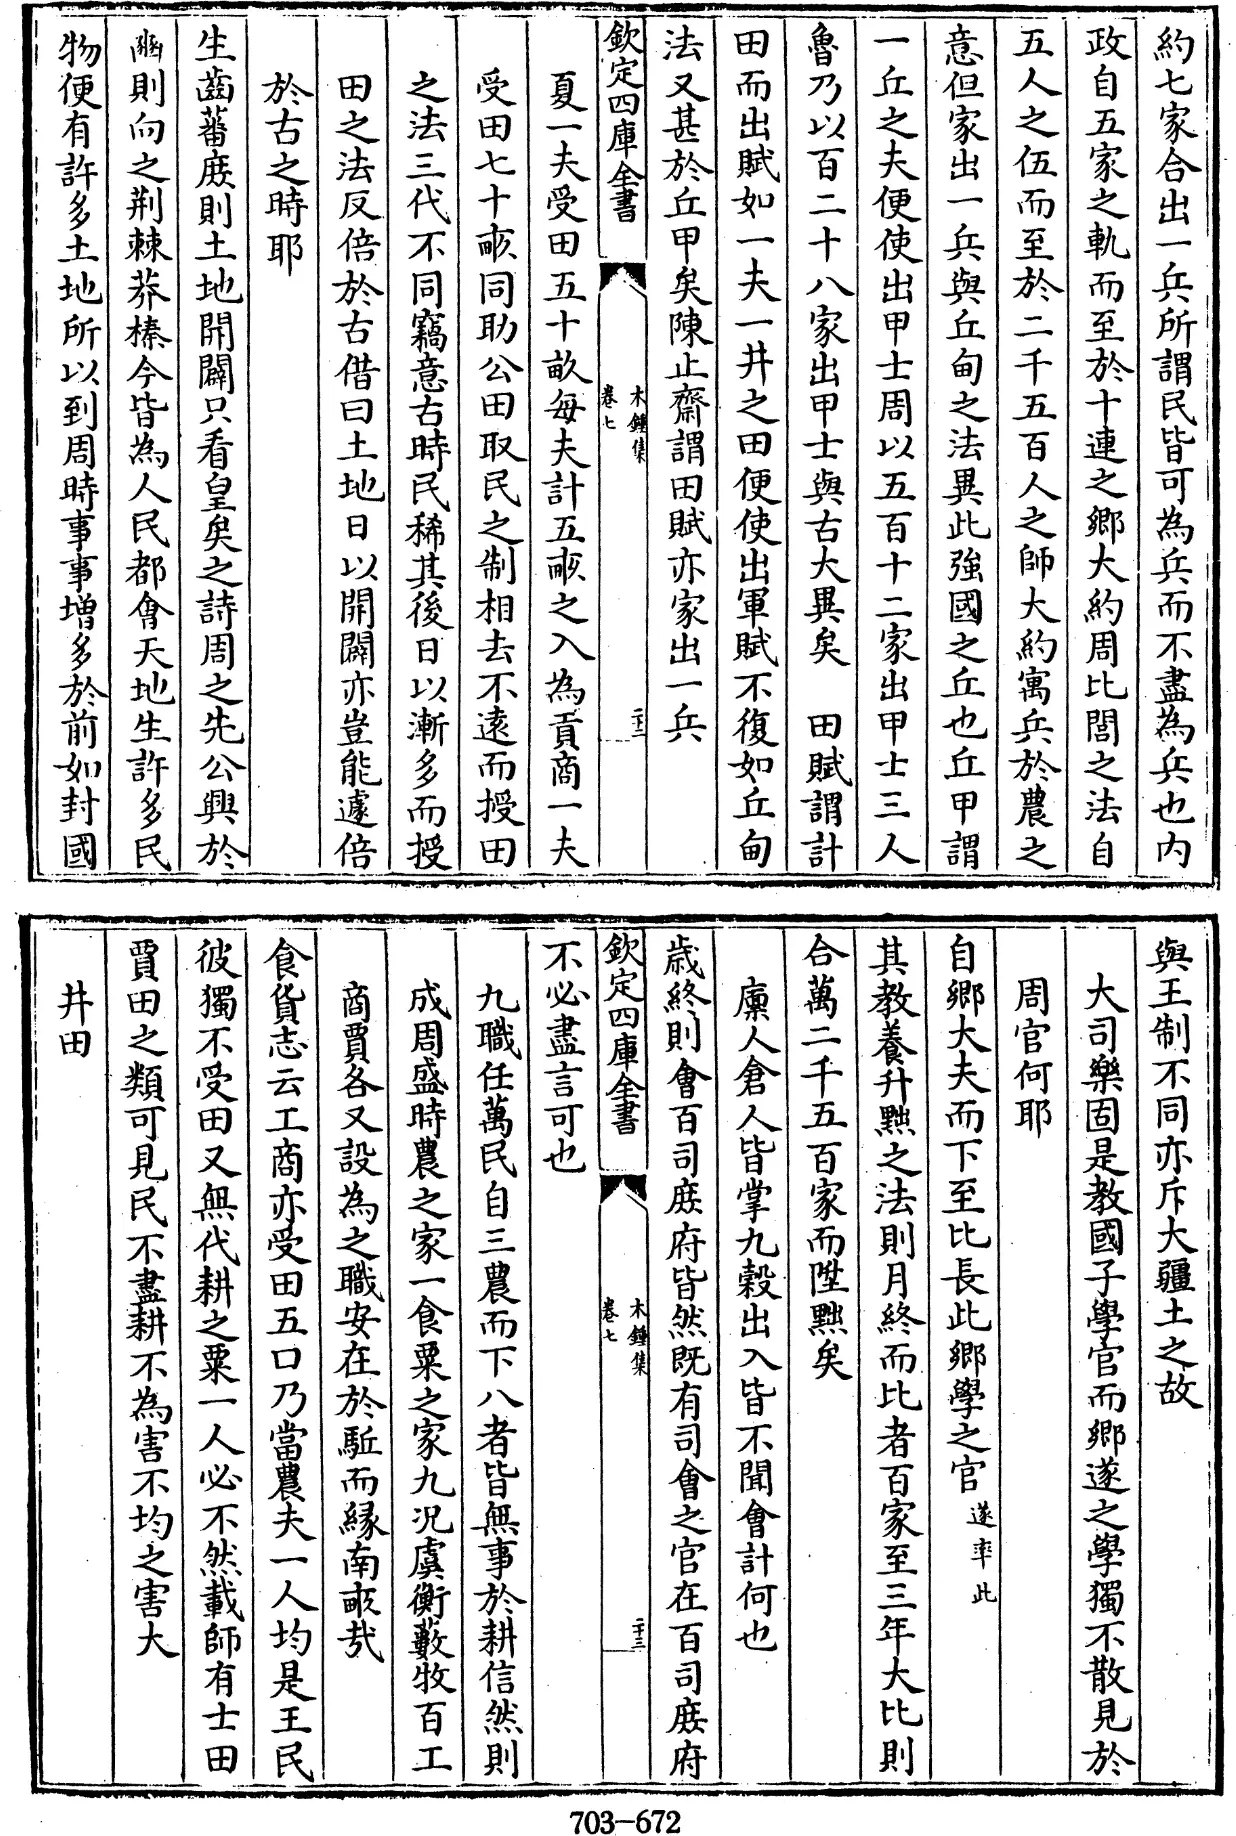 約七家合出一兵所謂民皆可為兵而不盡為兵也内
政自五家之軌而至於十連之鄉大約周比閭之法自
五人之伍而至於二千五百人之師大約寓兵於農之
意但家出一兵與丘甸之法異此強國之丘也丘甲謂
一丘之夫便使出甲士周以五百十二家出甲士三人
魯乃以百二十八家出甲士與古大異矣 田賦謂計
田而出賦如一夫一井之田便使出軍賦不復如丘甸
法又甚於丘甲矣陳止齋謂田賦亦家出一兵
欽定四庫全書
木鍾集
卷七
二十二
夏一夫受田五十畝每夫計五畝之入為貢商一夫
受田七十畝同助公田取民之制相去不遠而授田
之法三代不同竊意古時民稀其後日以漸多而授
田之法反倍於古借曰土地日以開闢亦豈能遽倍
於古之時耶
生齒蕃庻則土地開闢只看皇矣之詩周之先公興於
豳則向之荆棘莽榛今皆為人民都會天地生許多民
物便有許多土地所以到周時事事增多於前如封國
與王制不同亦斥大疆土之故
大司樂固是教國子學官而鄉遂之學獨不散見於
周官何耶
自鄉大夫而下至比長此鄉學之官遂率此
其教養升黜之法則月終而比者百家至三年大比則
合萬二千五百家而陞黜矣
廩人倉人皆掌九穀出入皆不聞會計何也
歲終則會百司庻府皆然既有司會之官在百司庻府
欽定四庫全書
木鍾集
卷七
二十三
不必盡言可也
九職任萬民自三農而下八者皆無事於耕信然則
成周盛時農之家一食粟之家九况虞衡藪牧百工
商賈各又設為之職安在於駈而緣南畝哉
食貨志云工商亦受田五口乃當農夫一人均是王民
彼獨不受田又無代耕之粟一人必不然載師有士田
賈田之類可見民不盡耕不為害不均之害大
井田
703-672